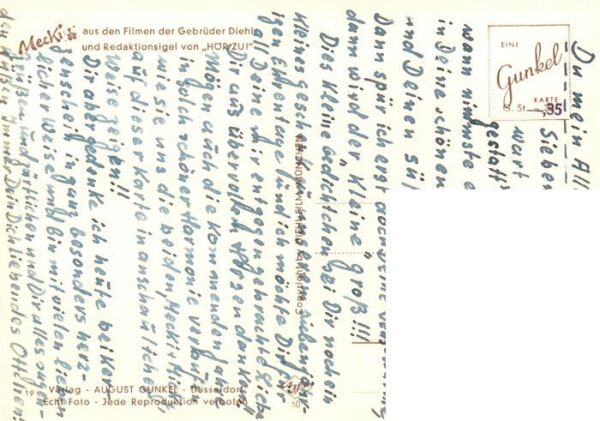 Mecki aus den Filmen der Gebrüder Diehl
und Redaktionsigel von „HÖR ZU!"
EINE
Gunkel
KARTE
s. St. -,35
Du mein All
Sieben
wert
gestatt
wann nimmst
in Deine schönen
und Deinen sü
Dann spür ich erst
dann wird der Kleine „groß"!!!
Dies kleine Gedichtchen bei Dir noch ein
kleines siebenjäh-
igen ich möchte Dir für
all Deine mir entgegengebrachte Liebe
Dir aus übervollem Herzen danken!
Mögen auch die kommenden Jahre
in solch schöner Harmonie verlaufen
wie sie uns die beiden „Mecki's" hier
auf dieser Karte in anschaulicher
Weise zeigen!!
Dir aber gedenke ich heute bei Ker-
zenschein in ganz besonders herz-
licher Weise und bin mit vielen lieben
Grüßen und und Dir alles sagen-
den Küssen Immer Dein Dich liebendes Ottilien!
Copyright by DIEHL-FILM MÜNCHEN
19
Verlag - AUGUST GUNKEL - Düsseldorf
Echt Foto - Jede Reproduktion verboten
50